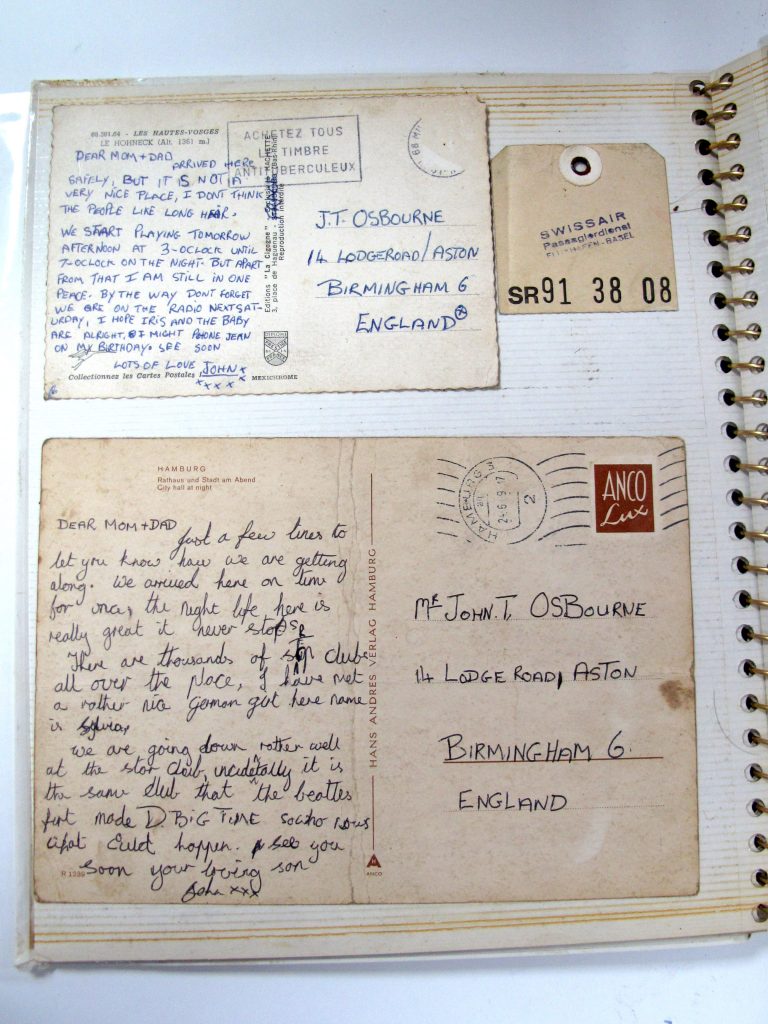 68.381.64 - LES HAUTES-VOSGES
LE HOHNECK (Alt. 1361 m.)
ACHETEZ TOUS
TIMBRE
ANTITUBERCULEUX
DEAR MOM + DAD
ARRIVED HERE
SAFELY, BUT IT IS NOT A
VERY NICE PLACE, I DONT THINK
THE PEOPLE LIKE LONG HAIR.
WE START PLAYING TOMORROW
AFTERNOON AT 3-OCLOCK UNTIL
7-OCLOCK ON THE NIGHT. BUT APART
FROM THAT I AM STILL IN ONE
PEACE. BY THE WAY DONT FORGET
WE ARE ON THE RADIO NEXT SAT-
URDAY, I HOPE IRIS AND THE BABY
ARE ALRIGHT, I MIGHT PHONE JEAN
ON MY BIRTHDAY. SEE SOON
LOTS OF LOVE JOHN x
x x x x
Collectionnez les Cartes Postales
MEXICHROME
Editions "La Cigogne"
HACHETTE
3, place de Haguenau - (Bas-Rhin)
Reproduction interdite
J.T. OSBOURNE
14 LODGEROAD/ASTON
BIRMINGHAM 6
ENGLAND
SWISSAIR
Passagierdienst
BASEL
SR91 38 08
HAMBURG
Rathaus und Stadt am Abend
City hall at night
DEAR MOM + DAD
Just a few lines to
let you know how we are getting
along. We arrived here on time
for once, the night life here is
really great it never stops
There are thousands of clubs
all over the place, I have met
a rather nice German girl here name
is Sylvia,
we are going down rather well
at the star club, incidetally it is
the same club that "the beatles
first made D. BIG TIME so who nows
what could happen. see you
soon your loving son
John xxx
R 1239
HANS ANDRES VERLAG HAMBURG
ANCO
HAMBURG
2
ANCO
Lux
MR JOHN.T, OSBOURNE
14 LODGE ROAD, ASTON
BIRMINGHAM 6.
ENGLAND